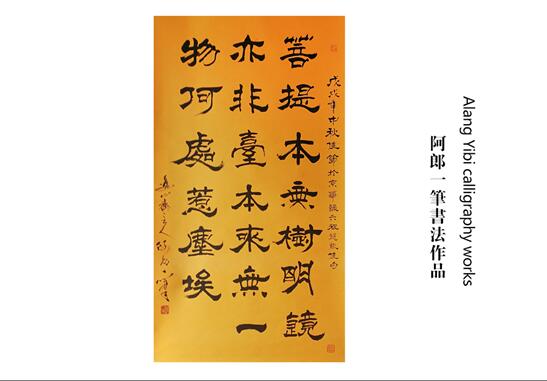 菩提本無樹明鏡
亦非臺本來無一
物何處惹塵埃
戊戌年中秋佳節於京華
Alang Yibi calligraphy works
阿郎一筆書法作品